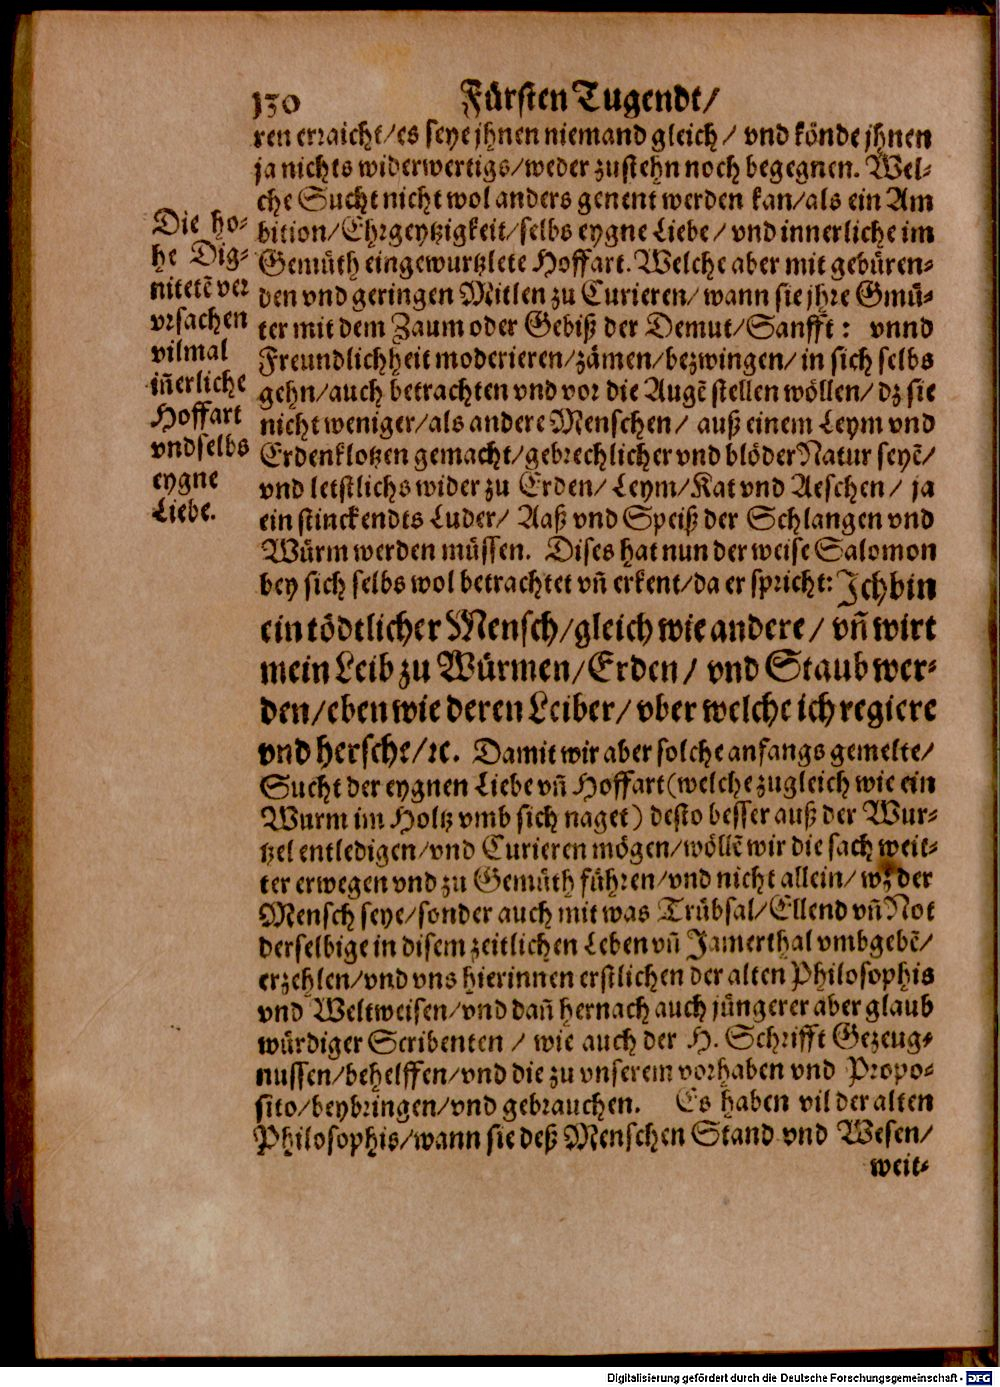 130
Fürsten Tugendt/
ren erraicht/es seye jhnen niemand gleich/ vnd könde jhnen
ja nichts widerwertigs/weder zustehn noch begegnen. Wel-
che Sucht nicht wol anders genent werden kan/als ein Am
bition/Ehrgeytzigkeit/selbs eygne Liebe/ vnd innerliche im
Gemüth eingewurtzlete Hoffart. Welche aber mit gebüren-
den vnd geringen Mitlen zu Curieren/ wann sie jhre Gmü-
ter mit dem Zaum oder Gebiß der Demut/Sanfft: vnnd
Freundlichheit moderieren/zämen/bezwingen/ in sich selbs
gehn/auch betrachten vnd vor die Augē stellen wöllen/ dz sie
nicht weniger/als andere Menschen/ auß einem Leym vnd
Erdenklotzen gemacht/gebrechlicher vnd blöder Natur seyē/
vnd letstlichs wider zu Erden/ Leym/Kat vnd Aeschen/ ja
ein stinckendts Luder/ Aaß vnd Speiß der Schlangen vnd
Würm werden müssen. Dises hat nun der weise Salomon
bey sich selbs wol betrachtet vñ erkent/da er spricht: Ich bin
ein tödtlicher Mensch/gleich wie andere/ vñ wirt
mein Leib zu Würmen/Erden/ vnd Staub wer-
den/eben wie deren Leiber/ vber welche ich regiere
vnd hersche/ꝛc. Damit wir aber solche anfangs gemelte/
Sucht der eygnen Liebe vñ Hoffart(welche zugleich wie ein
Wurm im Holtz vmb sich naget) desto besser auß der Wur-
tzel entledigen/vnd Curieren mögen/wöllē wir die sach weit-
ter erwegen vnd zu Gemüth führen/vnd nicht allein/ wz der
Mensch seye/sonder auch mit was Trübsal/Ellend vñ Not
derselbige in disem zeitlichen Leben vñ Jamerthal vmbgebē/
erzehlen/vnd vns hierinnen erstlichen der alten Philosophis
vnd Weltweisen/vnd dañ hernach auch jüngerer aber glaub
würdiger Scribenten/ wie auch der H. Schrifft Gezeug-
nussen/behelffen/vnd die zu vnserem vorhaben vnd Propo-
sito/beybringen/vnd gebrauchen. Es haben vil der alten
Philosophis/wann sie deß Menschen Stand vnd Wesen/
weit-
Die ho-
he Dig-
nitetē ver
vrsachen
vilmal
iñerliche
Hoffart
vnd selbs
eygne
Liebe.
Digitalisierung gefördert durch die Deutsche Forschungsgemeinschaft - DFG